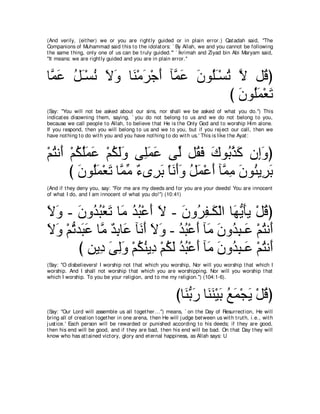 (And verily, (either) we or you are rightly guided or in plain error.) Qatadah said, "The
Companions of Muhammad said this to the idolators: `By Allah, we and you cannot be following
the same thing, only one of us can be truly guided.''' `Ikrimah and Ziyad bin Abi Maryam said,
"It means: we are rightly guided and you are in plain error."
قُل لاَّ تُسْـَلُونَ عَمَّآ أَجْرَمْنَا وَلاَ نُسْـَلُ عَمَّا
تَعْمَلُونَ )
(Say: "You will not be asked about our sins, nor shall we be asked of what you do.") This
indicates disowning them, saying, `you do not belong to us and we do not belong to you,
because we call people to Allah, to believe that He is the Only God and to worship Him alone.
If you respond, then you will belong to us and we to you, but if you reject our call, then we
have nothing to do with you and you have nothing to do with us.' This is like the Ayat:
وَإِن كَذَّبُوكَ فَقُل لِّى عَمَلِى وَلَكُمْ عَمَلُكُمْ أَنتُمْ
بَرِيئُونَ مِمَّآ أَعْمَلُ وَأَنَاْ بَرِىءٌ مِّمَّا تَعْمَلُونَ )
(And if they deny you, say: "For me are my deeds and for you are your deeds! You are innocent
of what I do, and I am innocent of what you do!") (10:41)
قُلْ يأَيُّهَا الْكَـفِرُونَ - لاَ أَعْبُدُ مَا تَعْبُدُونَ - وَلاَ
أَنتُمْ عَـبِدُونَ مَآ أَعْبُدُ - وَلاَ أَنَآ عَابِدٌ مَّا عَبَدتُّمْ وَلاَ
أَنتُمْ عَـبِدُونَ مَآ أَعْبُدُ لَكُمْ دِينُكُمْ وَلِىَ دِينِ )
(Say: "O disbelievers! I worship not that which you worship. Nor will you worship that which I
worship. And I shall not worship that which you are worshipping. Nor will you worship that
which I worship. To you be your religion, and to me my religion.") (104:1-6).
(قُلْ يَجْمَعُ بَيْنَنَا رَبُّنَا)
(Say: "Our Lord will assemble us all together...") means, `on the Day of Resurrection, He will
bring all of creation together in one arena, then He will judge between us with truth, i.e., with
justice.' Each person will be rewarded or punished according to his deeds; if they are good,
then his end will be good, and if they are bad, then his end will be bad. On that Day they will
know who has attained victory, glory and eternal happiness, as Allah says: U